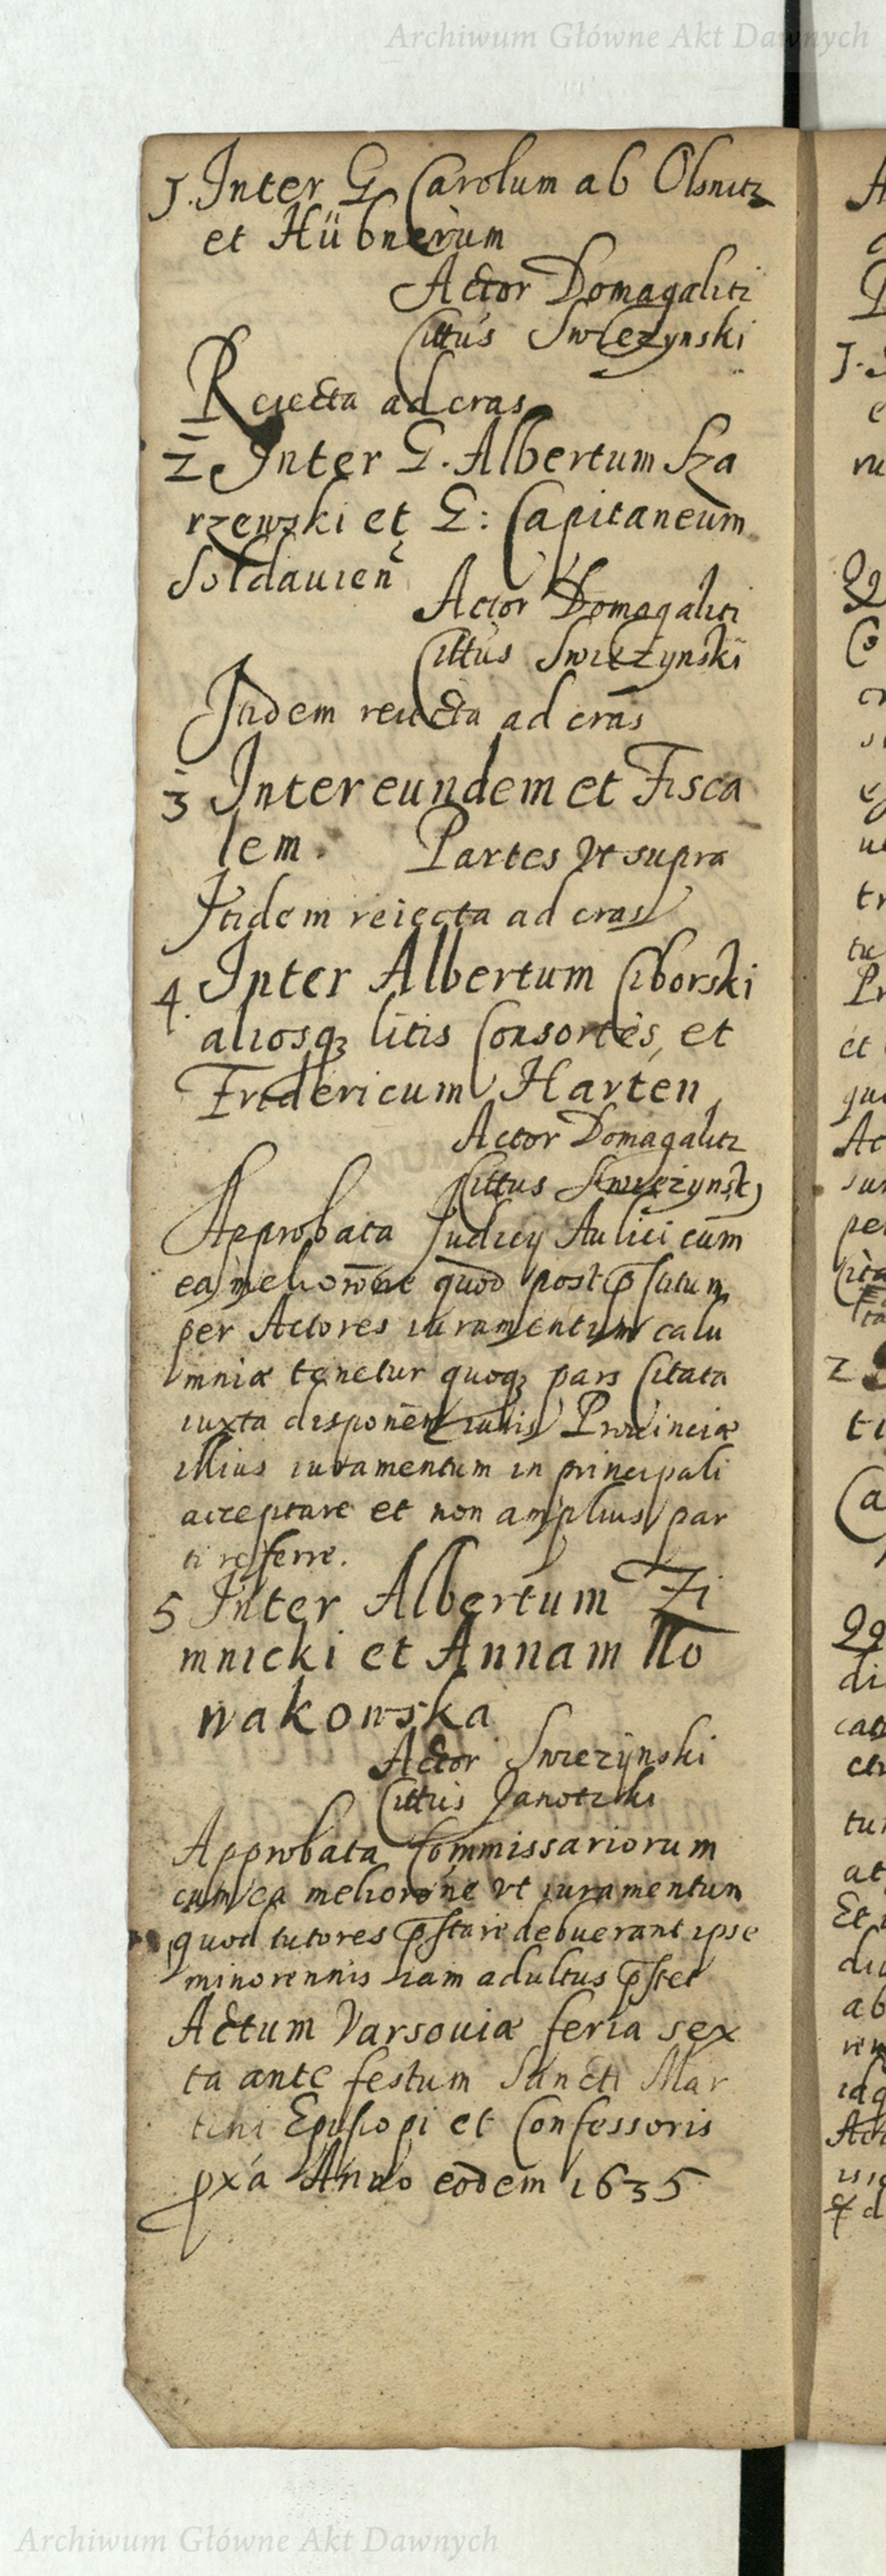 Archiwum Główne Akt Dawnych
1. Inter G. Carolum ab Olsnitz
et Hübnerum
Actor Domagaliti
Cittus Swiezynski
Reiecta ad cras
2 Inter G. Albertum Sza
rzewski et G: Capitaneum
Soldauien
Actor Domagaliti
Cittus Swiezynski
Itidem reiecta ad cras
3 Inter eundem et Fisca
lem. Partes vt supra
Itidem reiecta ad cras
4. Inter Albertum Ciborski
aliosq₃ litis Consortes, et
Fridericum Harten
Actor Domagalitz
Cittus Swiezynski
Approbata Judicÿ Aulici cum
ea meliorōne quod post p̄stitum
per Actores iuramentum calu
mniæ tenetur quoq₃ pars Citata
iuxta disponēm iuris Prouinciæ
illius iuramentum in principali
acceptare et non amplius par
ti referre.
5 Inter Albertum Zi
mnicki et Annam No
wakowska
Actor Swiezÿnski
Cittus Janotzki
Approbata Commissariorum
cum ea meliorōne vt iuramentum
quod tutores p̄stare debuerant ipse
minorennis iam adultus p̄stet
Actum Varsouiæ feria sex
ta ante festum Sancti Mar
tini Episcopi et Confessoris
pxa Anno eodem 1635
Archiwum Główne Akt Dawnych